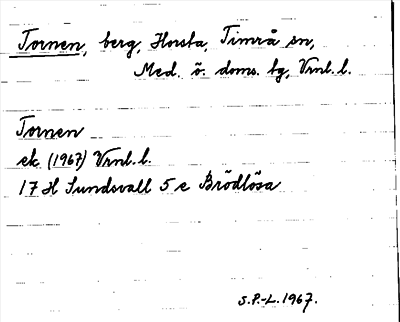 Tornen, berg, Horsta, Timrå sn,
Med. ö. doms. tg, Vrnl. l.
Tornen
ek. (1967) Vrnl. l.
17 H Sundsvall 5 e Brödlösa
S.P.-L. 1967.